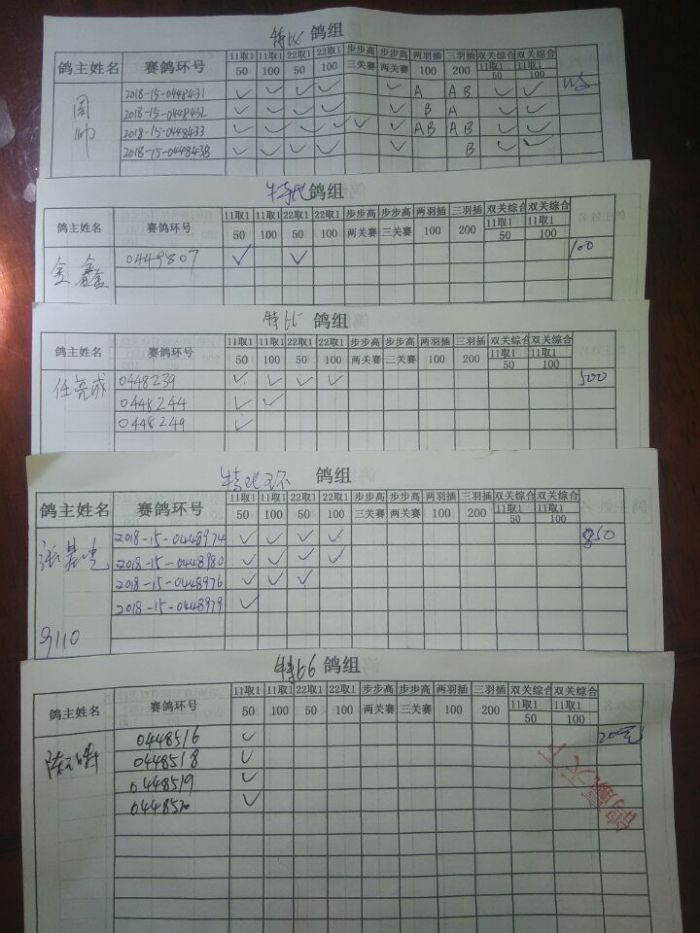 特66 鸽组
鸽主姓名 赛鸽环号 11取1 11取1 22取1 22取1 步步高 步步高 两羽插 三羽插 双关综合 双关综合
50 100 50 100 三关赛 两关赛 100 200 11取1 11取1
50 100
周帅 2018-15-0448431 ✓ ✓ ✓ ✓ ✓ A AB ✓ ✓
2018-15-0448432 ✓ ✓ ✓ ✓ ✓ B A ✓ ✓
2018-15-0448433 ✓ ✓ ✓ ✓ ✓ ✓ AB AB ✓ ✓
2018-15-0448438 ✓ ✓ ✓ ✓ ✓ B ✓ ✓
鸽组
鸽主姓名 赛鸽环号 11取1 11取1 22取1 22取1 步步高 步步高 两羽插 三羽插 双关综合 双关综合
50 100 50 100 两关赛 三关赛 100 200 11取1 11取1
50 100
金鑫 0449807 ✓ ✓ 100
特66 鸽组
鸽主姓名 赛鸽环号 11取1 11取1 22取1 22取1 步步高 步步高 两羽插 三羽插 双关综合 双关综合
50 100 50 100 两关赛 三关赛 100 200 11取1 11取1
50 100
任亮成 0448239 ✓ ✓ ✓ ✓ 500
0448244 ✓ ✓
0448249 ✓
鸽组
鸽主姓名 赛鸽环号 11取1 11取1 22取1 22取1 步步高 步步高 两羽插 三羽插 双关综合 双关综合
50 100 50 100 三关赛 两关赛 100 200 11取1 11取1
50 100
张 2018-15-0448974 ✓ ✓ ✓ ✓ 850
2018-15-0448980 ✓ ✓ ✓ ✓
2018-15-0448976 ✓ ✓ ✓
2018-15-0448979 ✓
9110
特66 鸽组
鸽主姓名 赛鸽环号 11取1 11取1 22取1 22取1 步步高 步步高 两羽插 三羽插 双关综合 双关综合
50 100 50 100 两关赛 三关赛 100 200 11取1 11取1
50 100
陈 0448516 ✓ 200元
0448518 ✓
0448519 ✓
0448520 ✓